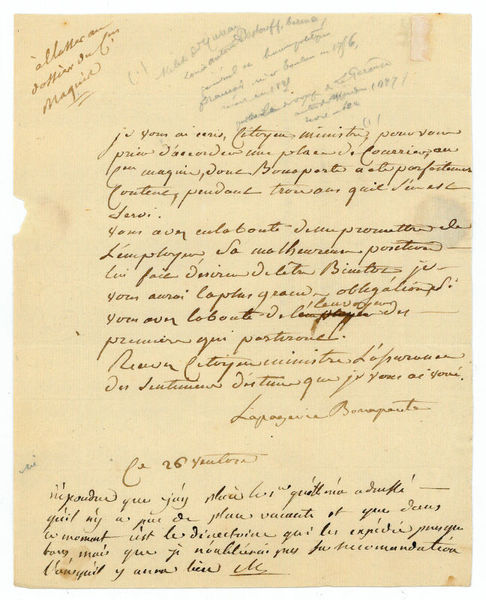 à Classer au
dossier du Cen
Maquin
je vous ai ecris, Citoyen ministre, pour vous
prier d'accorder une place de Courrier, au
cen maquin, dont Bonaparte a ete parfaitement
Content, pendant trois ans qu'il s'en est
servi.
vous avez eu la bonté de me promettre de
L'employer, Sa malheureuse position
lui fait desirer de l'etre Bientot je
vous aurai la plus grande obligation, Si
vous avez la bonté de l'envoyer des
premiers qui partiront.
Recevez Citoyen ministre L'assurance
des sentimens d'estime que je vous ai voué.
Lapagerie Bonaparte
Ce 26 Ventose
répondre que j'ay placé les qu'elle m'a adressé
qu'il n'y a pas de place vacante et que dans
ce moment c'est le directoire qui les expédie presque
tous mais que je n'oublierai pas sa recomandation
lorsqu'il y aura lieu